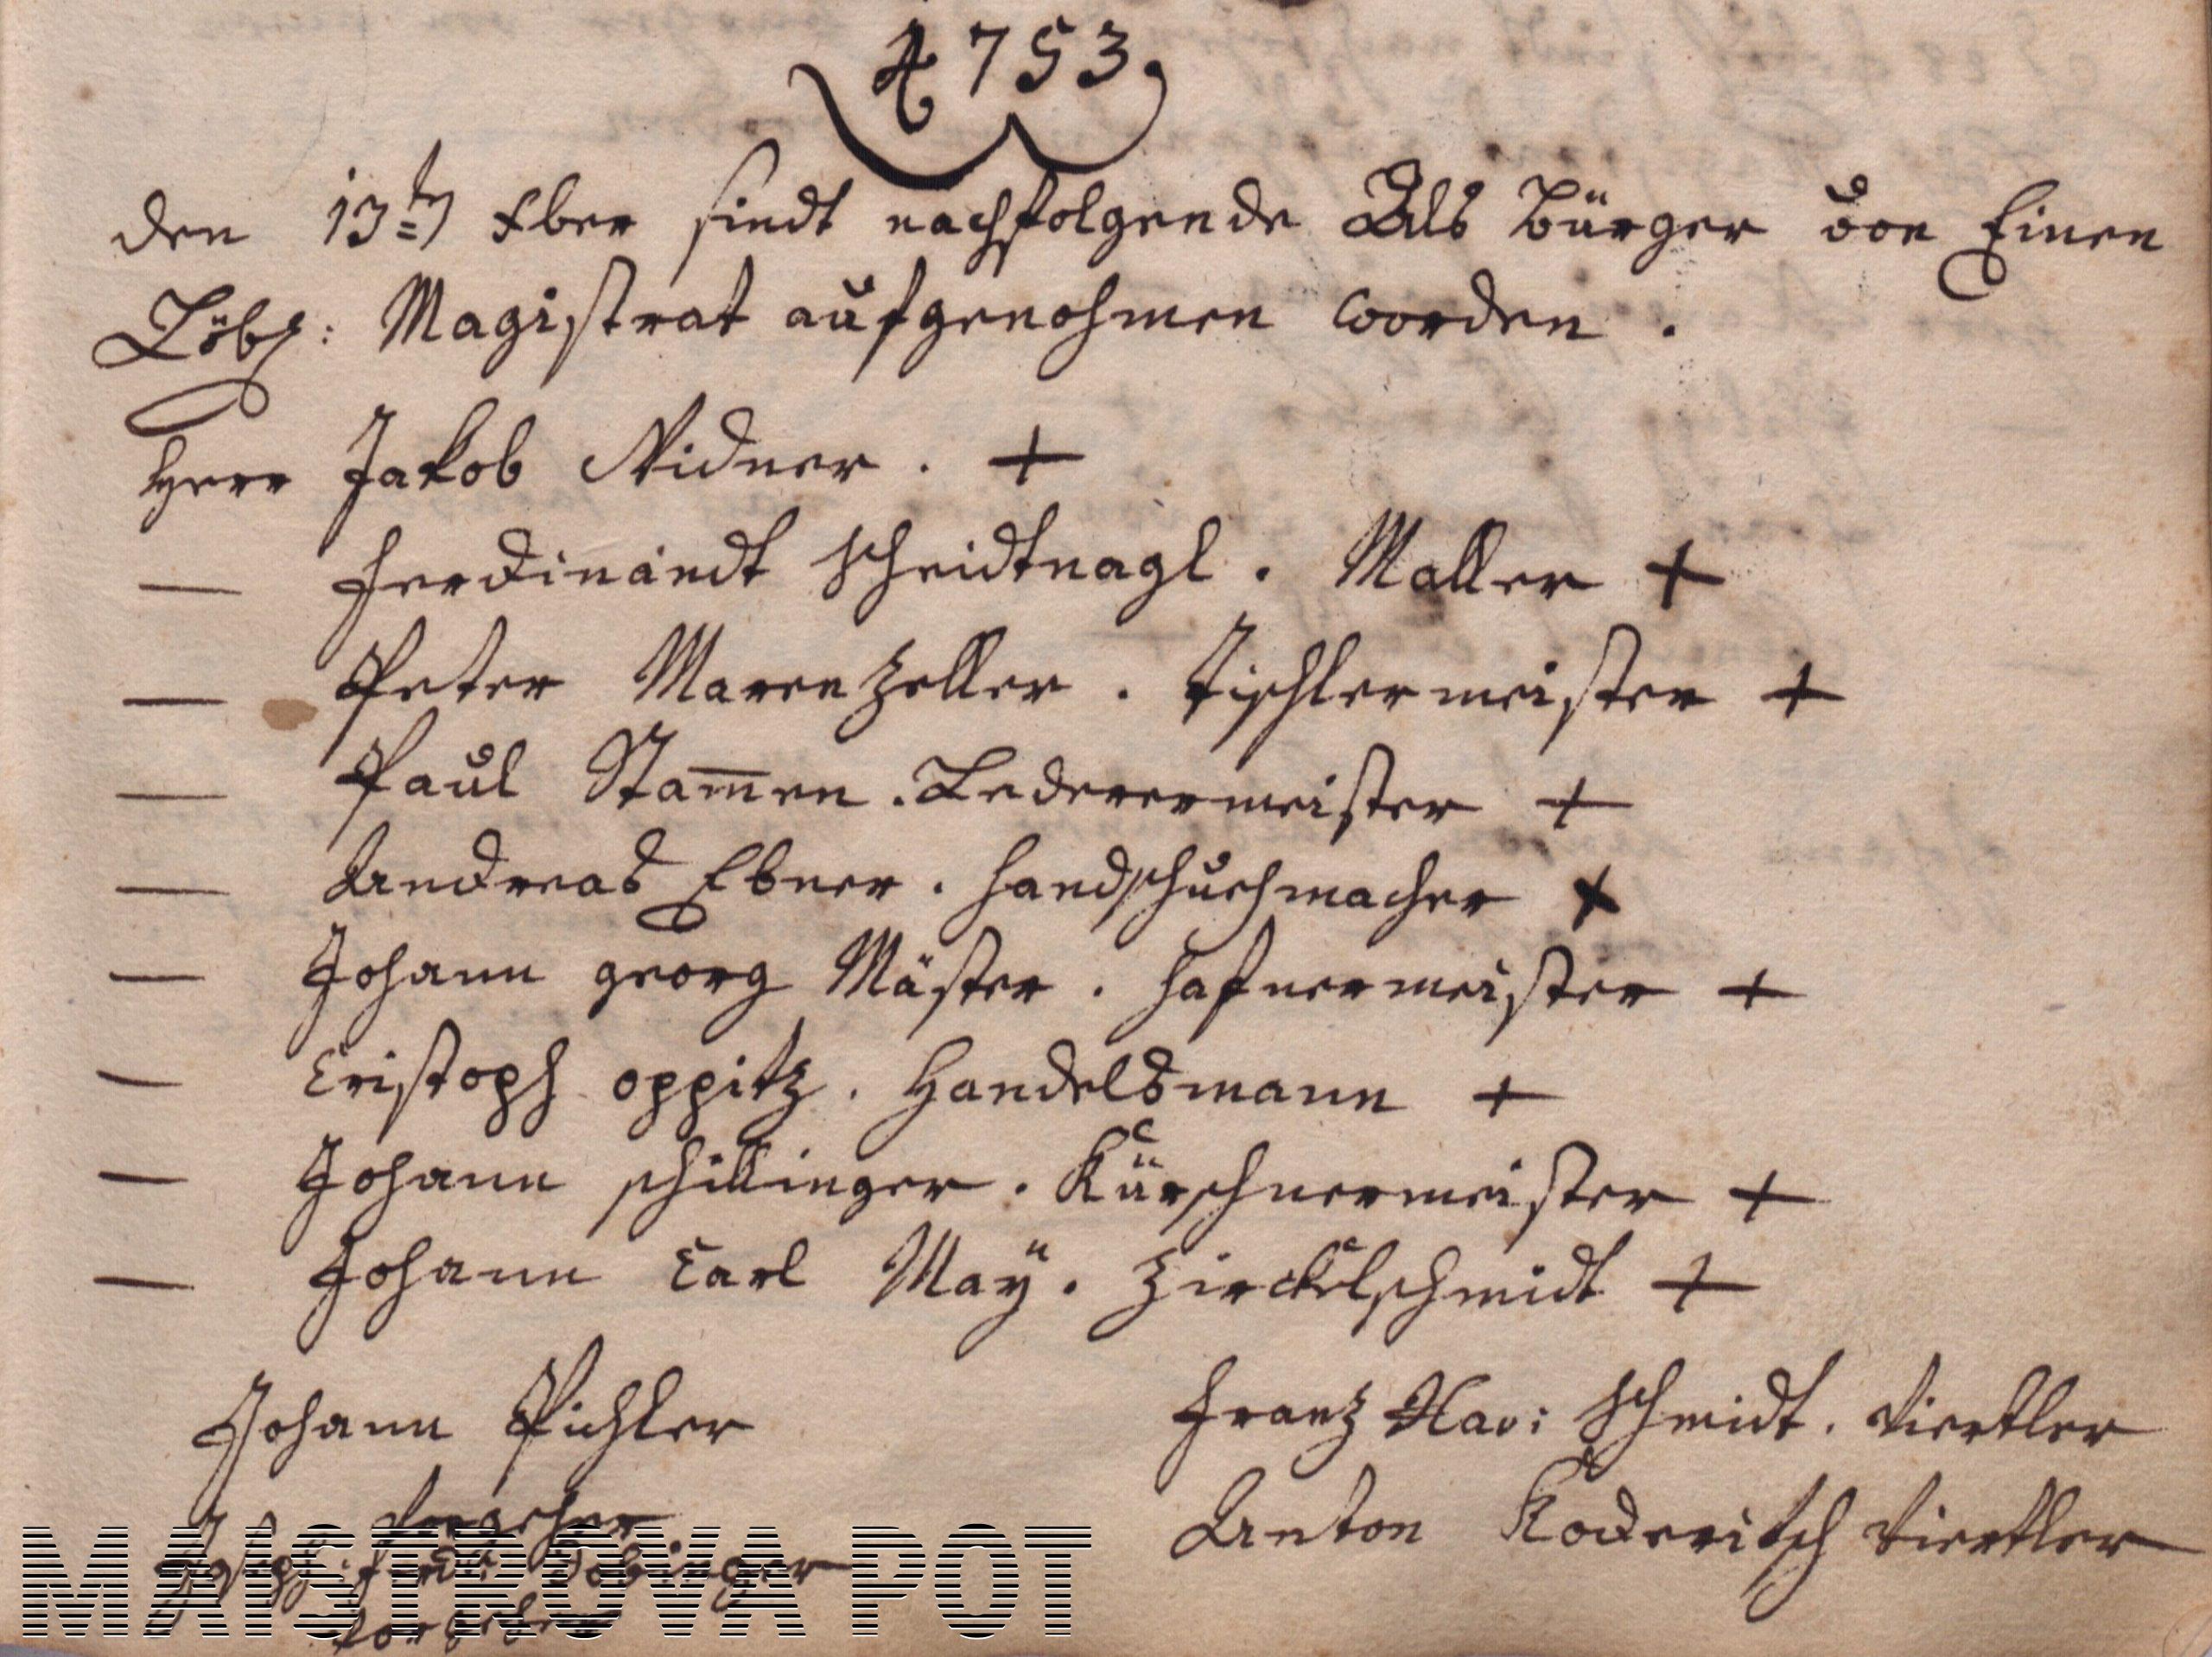 1753
den 13ten Xber sindt nachfolgende Als Bürger von Einen
Löbl: Magistrat aufgenohmen worden .
Herr Jakob Widner . +
— Ferdinandt Scheidtnagl . Maller +
— Peter Marenzeller . Tischlermeister +
— Paul Stam̄en . Lederermeister +
— Andreas Ebner . Handschuchmacher +
— Johann georg Mäster . Hafnermeister +
— Cristoph oppitz . Handelsmann +
— Johann schillinger . Kürschnermeister +
— Johann Carl Maÿ . Zirckelschmidt +
Johann Pichler
Vorgeher
Joseph Ferdi: Dobinger
Vorgeher
Franz Xav: Schmidt . Viertler
Anton Koderitsch Viertler
MAISTROVA POT